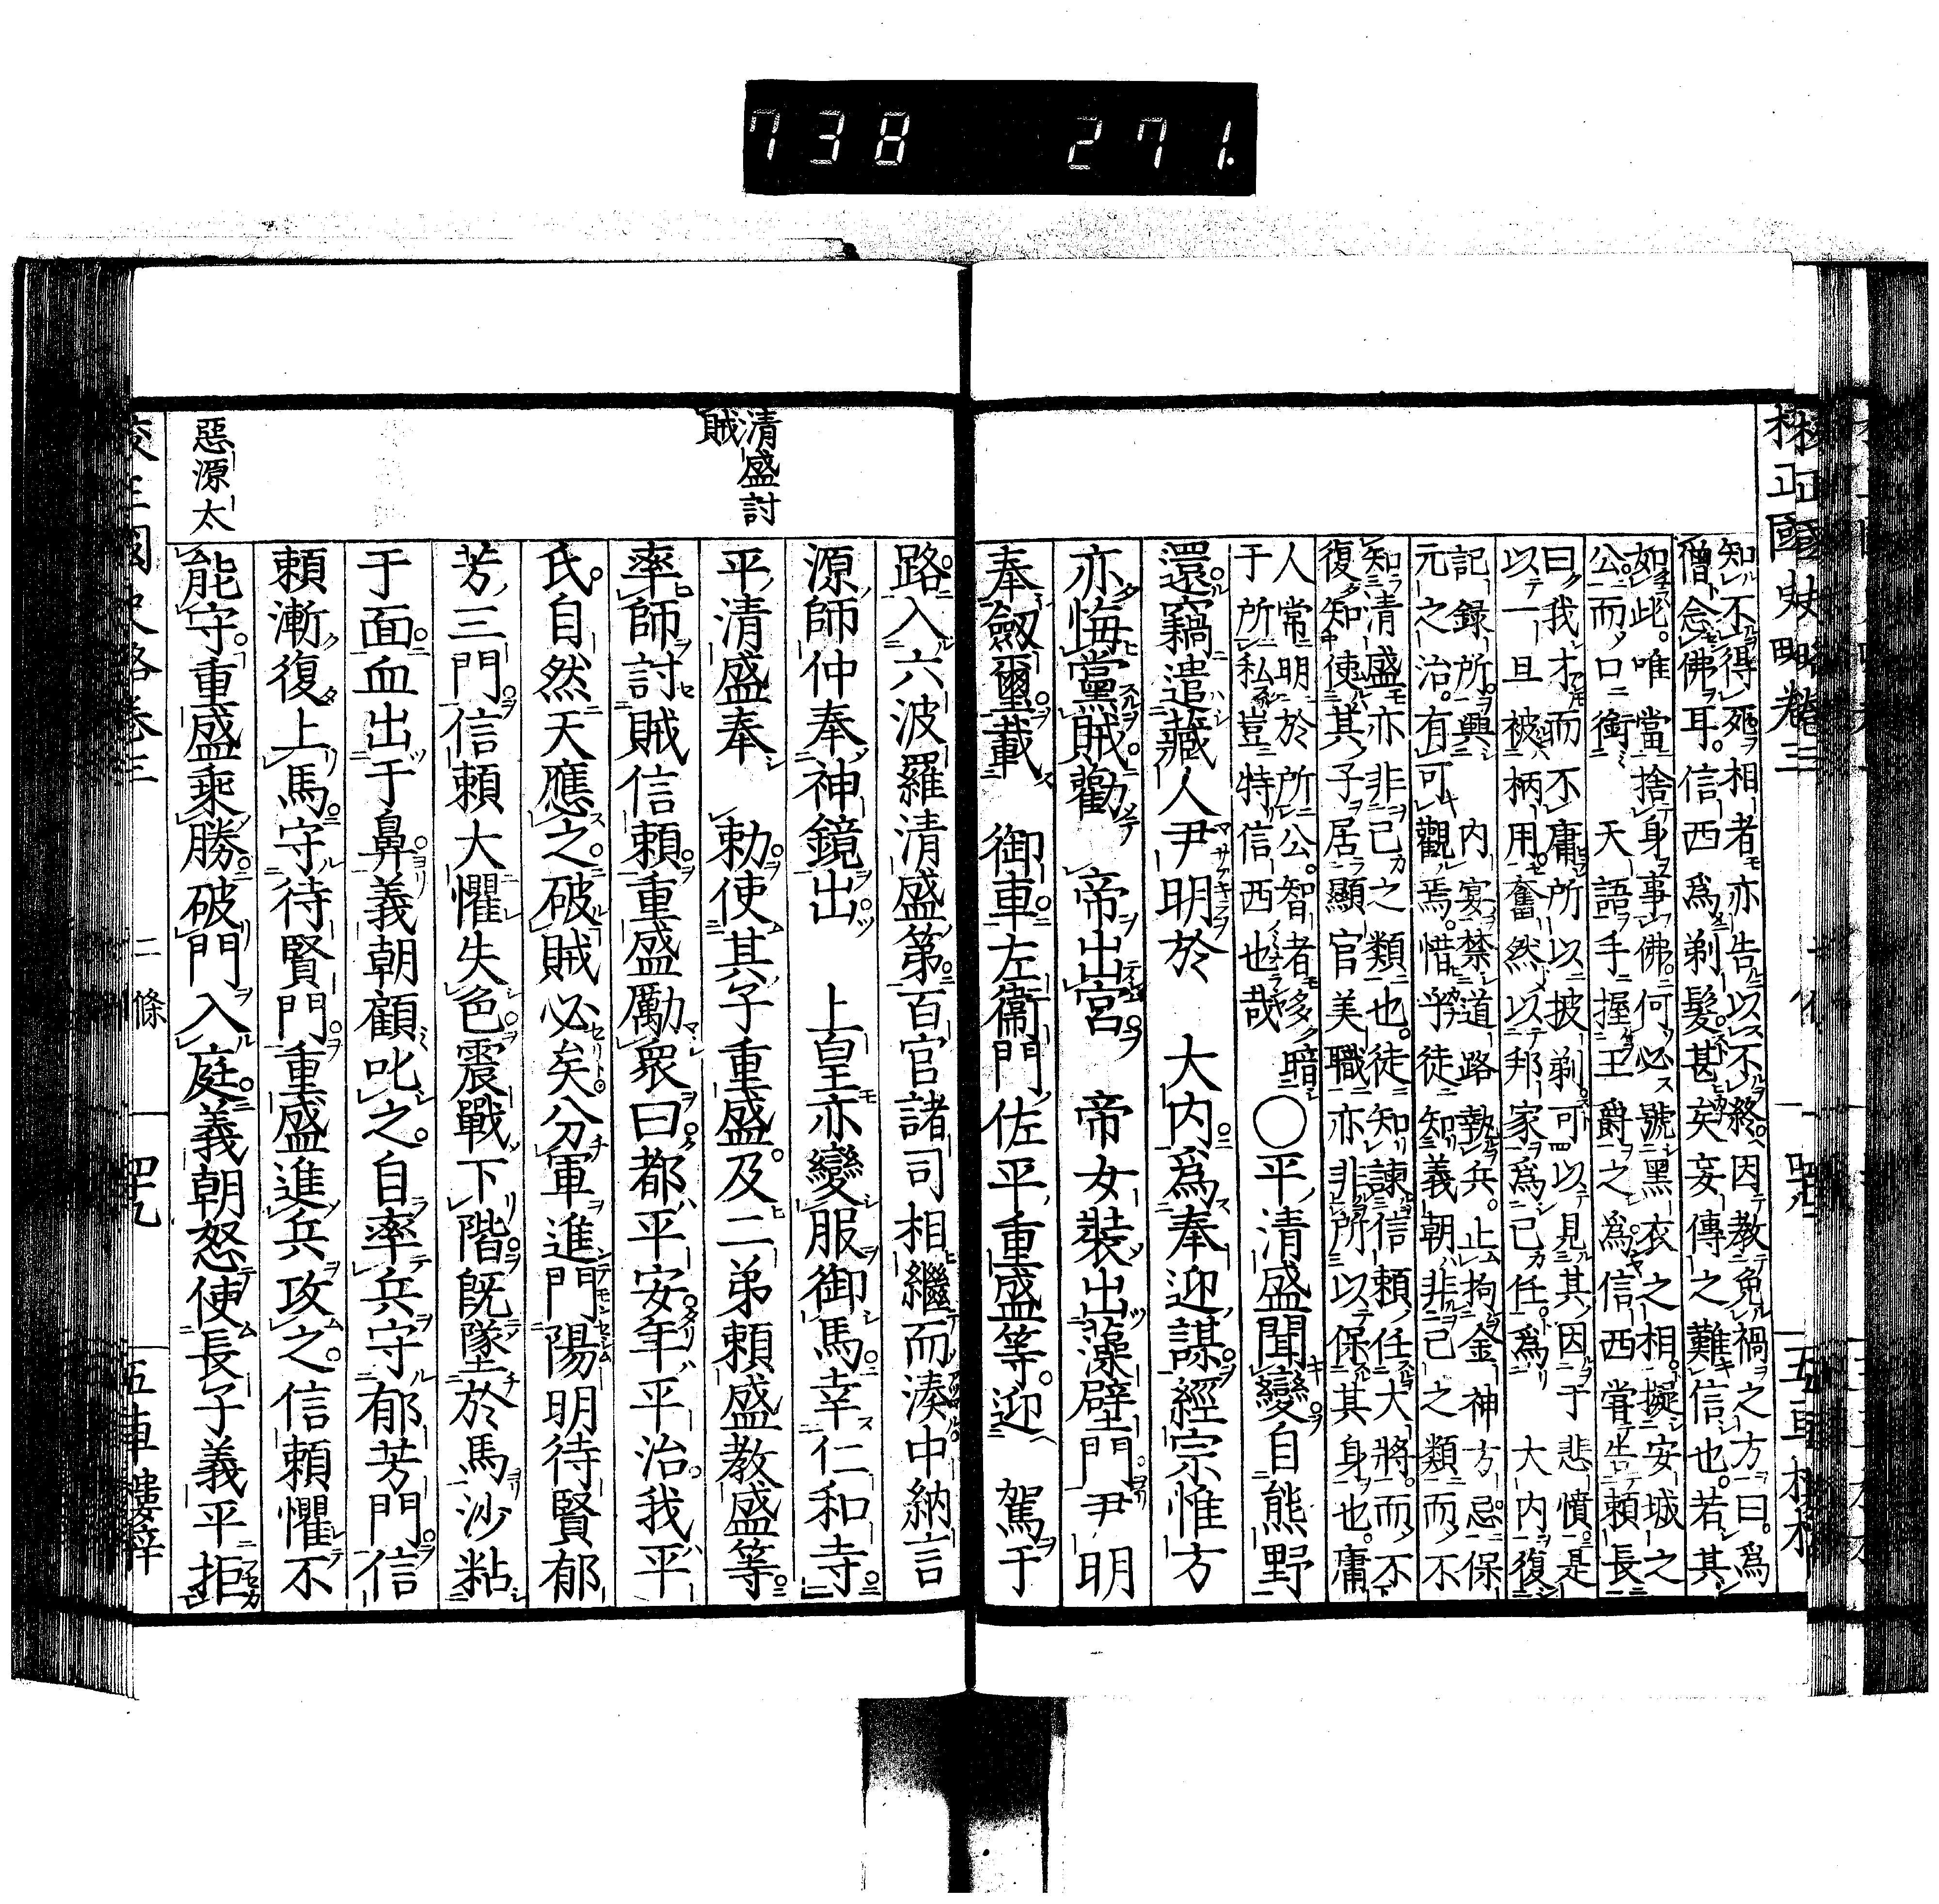 738 271.
校正國史略卷三
知不得死相者亦告以不終因教免禍之方曰爲
僧念佛耳信西爲剃髮甚矣妄傳之難信也若其
如此唯當捨身事佛何必號黑衣之相擬安城之
公而口銜天語手握王爵之爲信西嘗告賴長
曰我才而不庸所以披剃可以見其因于悲憤是
以一旦被柄用奮然以邦家爲己任爲大內復
記錄所興內宴禁道路執兵止拘金神方忌保
元之治有可觀焉惜乎徒知義朝非己之類而不
知清盛亦非己之類也徒知諫信賴任大將而不
復知使其子居顯官美職亦非所以保其身也庸
人常明於所公智者多暗
于所私豈特信西也哉
○平清盛聞變自熊野
還竊遣藏人尹明於大內爲奉迎謀經宗惟方
亦悔黨賊勸帝出宮帝女裝出藻壁門尹明
奉劔璽載御車左衞門佐平重盛等迎駕于
路入六波羅清盛第百官諸司相繼而湊中納言
源師仲奉神鏡出上皇亦變服御馬幸仁和寺
清盛討
賊
平清盛奉勅使其子重盛及二弟賴盛教盛等
率師討賊信賴重盛勵衆曰都平安年平治我平
氏自然天應之破賊必矣分軍進門陽明待賢郁
芳三門信賴大懼失色震戰下階既墜於馬沙粘
于面血出于鼻義朝顧叱之自率兵守郁芳門信
賴漸復上馬守待賢門重盛進兵攻之信賴懼不
惡源太
能守重盛乘勝破門入庭義朝怒使長子義平拒
二條
五車樓梓